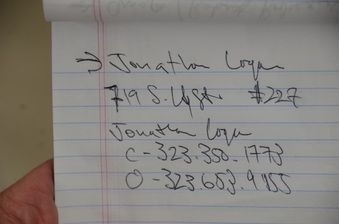 → Jonathan Logan
719 S. #227
Jonathan Logan
C-323.350.1773
O-323.653.9455